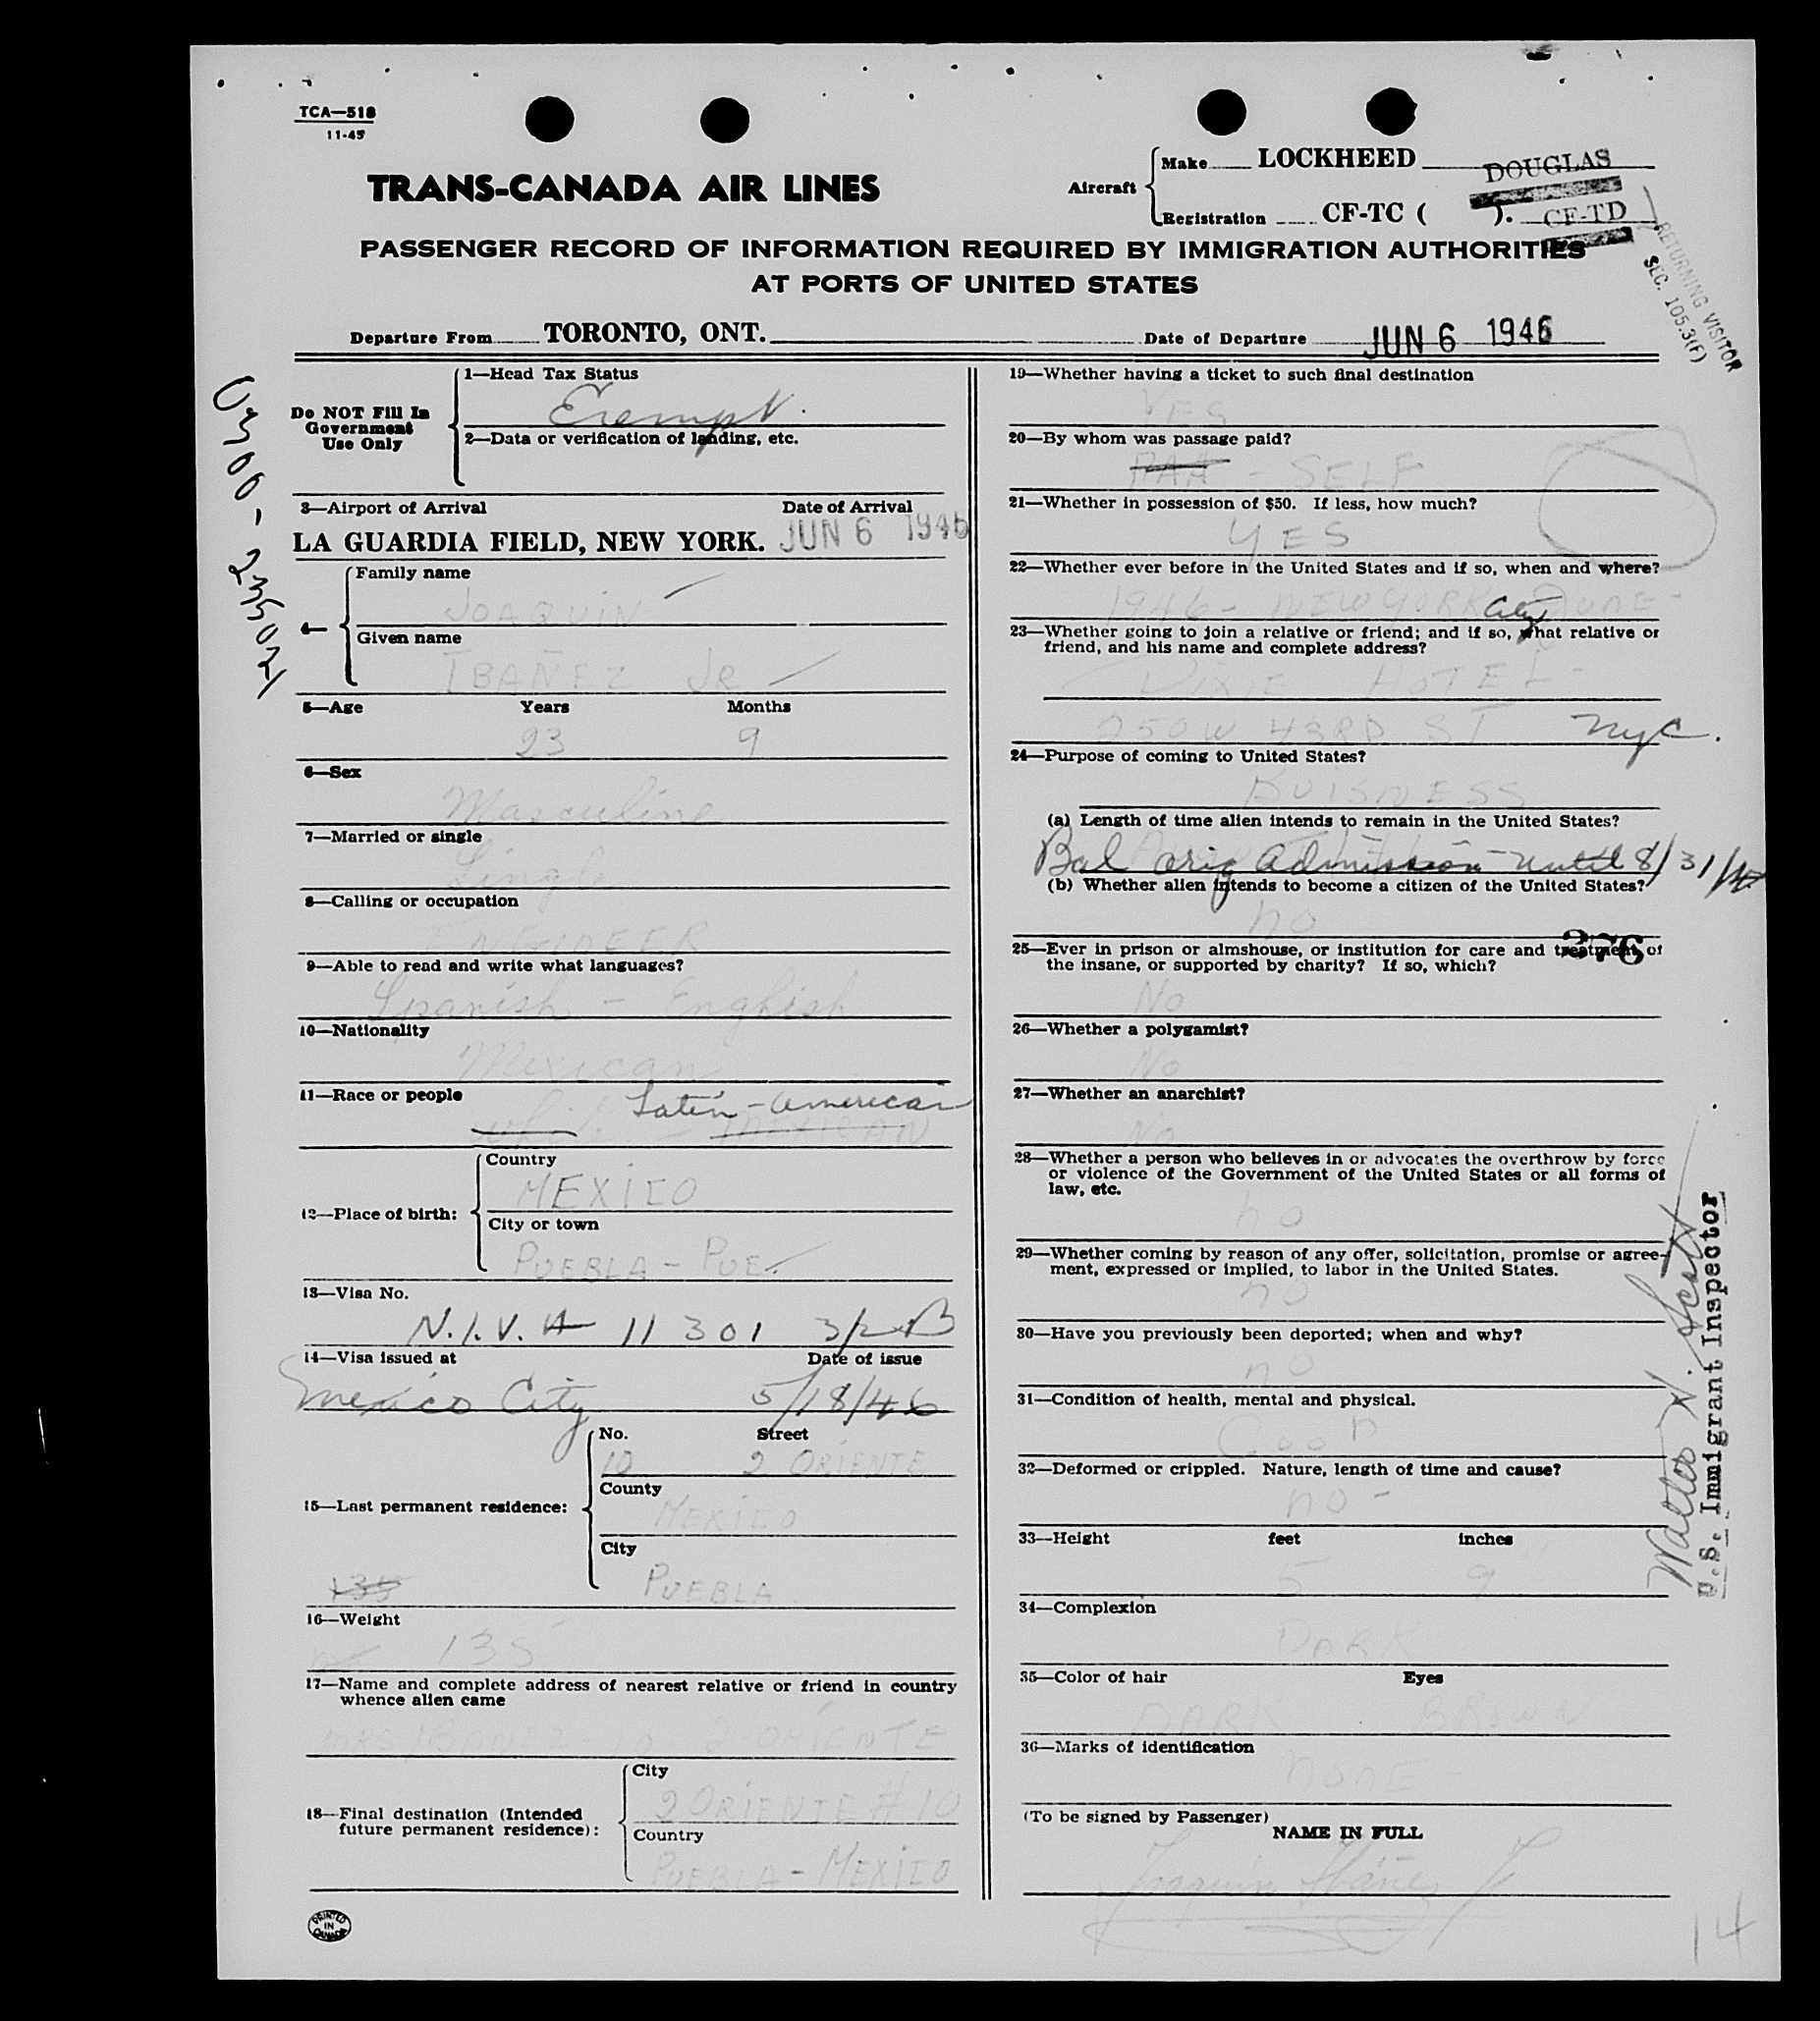 TCA—518
11-45
TRANS-CANADA AIR LINES
Aircraft
Make LOCKHEED DOUGLAS
Registration CF-TC ( ). CF-TD
RETURNING VISITOR
SEC. 105.3(F)
PASSENGER RECORD OF INFORMATION REQUIRED BY IMMIGRATION AUTHORITIES
AT PORTS OF UNITED STATES
Departure From TORONTO, ONT. Date of Departure JUN 6 1946
Do NOT Fill In
Government
Use Only
1—Head Tax Status
Exempt.
2—Data or verification of landing, etc.
3—Airport of Arrival Date of Arrival
LA GUARDIA FIELD, NEW YORK. JUN 6 1946
4—
Family name
JOAQUIN
Given name
IBAÑEZ JR
5—Age Years Months
23 9
6—Sex
Masculine
7—Married or single
Single
8—Calling or occupation
ENGINEER
9—Able to read and write what languages?
Spanish - English
10—Nationality
Mexican
11—Race or people Latin-American
MEXICAN
12—Place of birth:
Country
MEXICO
City or town
PUEBLA - PUE.
13—Visa No.
N.I.V. 11301 3/2 B
14—Visa issued at Date of issue
Mexico City 5/18/46
15—Last permanent residence:
No. Street
10 2 ORIENTE
County
MEXICO
City
PUEBLA
135
16—Weight
135
17—Name and complete address of nearest relative or friend in country
whence alien came
MRS IBANEZ - 10 2 ORIENTE
18—Final destination (Intended
future permanent residence):
City
2 ORIENTE #10
Country
PUEBLA - MEXICO
PRINTED
IN
CANADA
19—Whether having a ticket to such final destination
YES
20—By whom was passage paid?
PAA - SELF
21—Whether in possession of $50. If less, how much?
YES
22—Whether ever before in the United States and if so, when and where?
1946 - NEW YORK City JUNE -
23—Whether going to join a relative or friend; and if so, what relative or
friend, and his name and complete address?
DIXIE HOTEL -
250 W 43RD ST NYC.
24—Purpose of coming to United States?
BUISNESS
(a) Length of time alien intends to remain in the United States?
Bal orig admission - until 8/31/46
(b) Whether alien intends to become a citizen of the United States?
no
376
25—Ever in prison or almshouse, or institution for care and treatment of
the insane, or supported by charity? If so, which?
No
26—Whether a polygamist?
No
27—Whether an anarchist?
No
28—Whether a person who believes in or advocates the overthrow by force
or violence of the Government of the United States or all forms of
law, etc.
no
29—Whether coming by reason of any offer, solicitation, promise or agree-
ment, expressed or implied, to labor in the United States.
no
30—Have you previously been deported; when and why?
no
31—Condition of health, mental and physical.
GOOD
32—Deformed or crippled. Nature, length of time and cause?
no -
33—Height feet inches
5 9
34—Complexion
DARK
35—Color of hair Eyes
DARK BROWN
36—Marks of identification
NONE -
(To be signed by Passenger)
NAME IN FULL
Joaquin Ibáñez Jr
Walter N. Scott
U.S. Immigrant Inspector
14